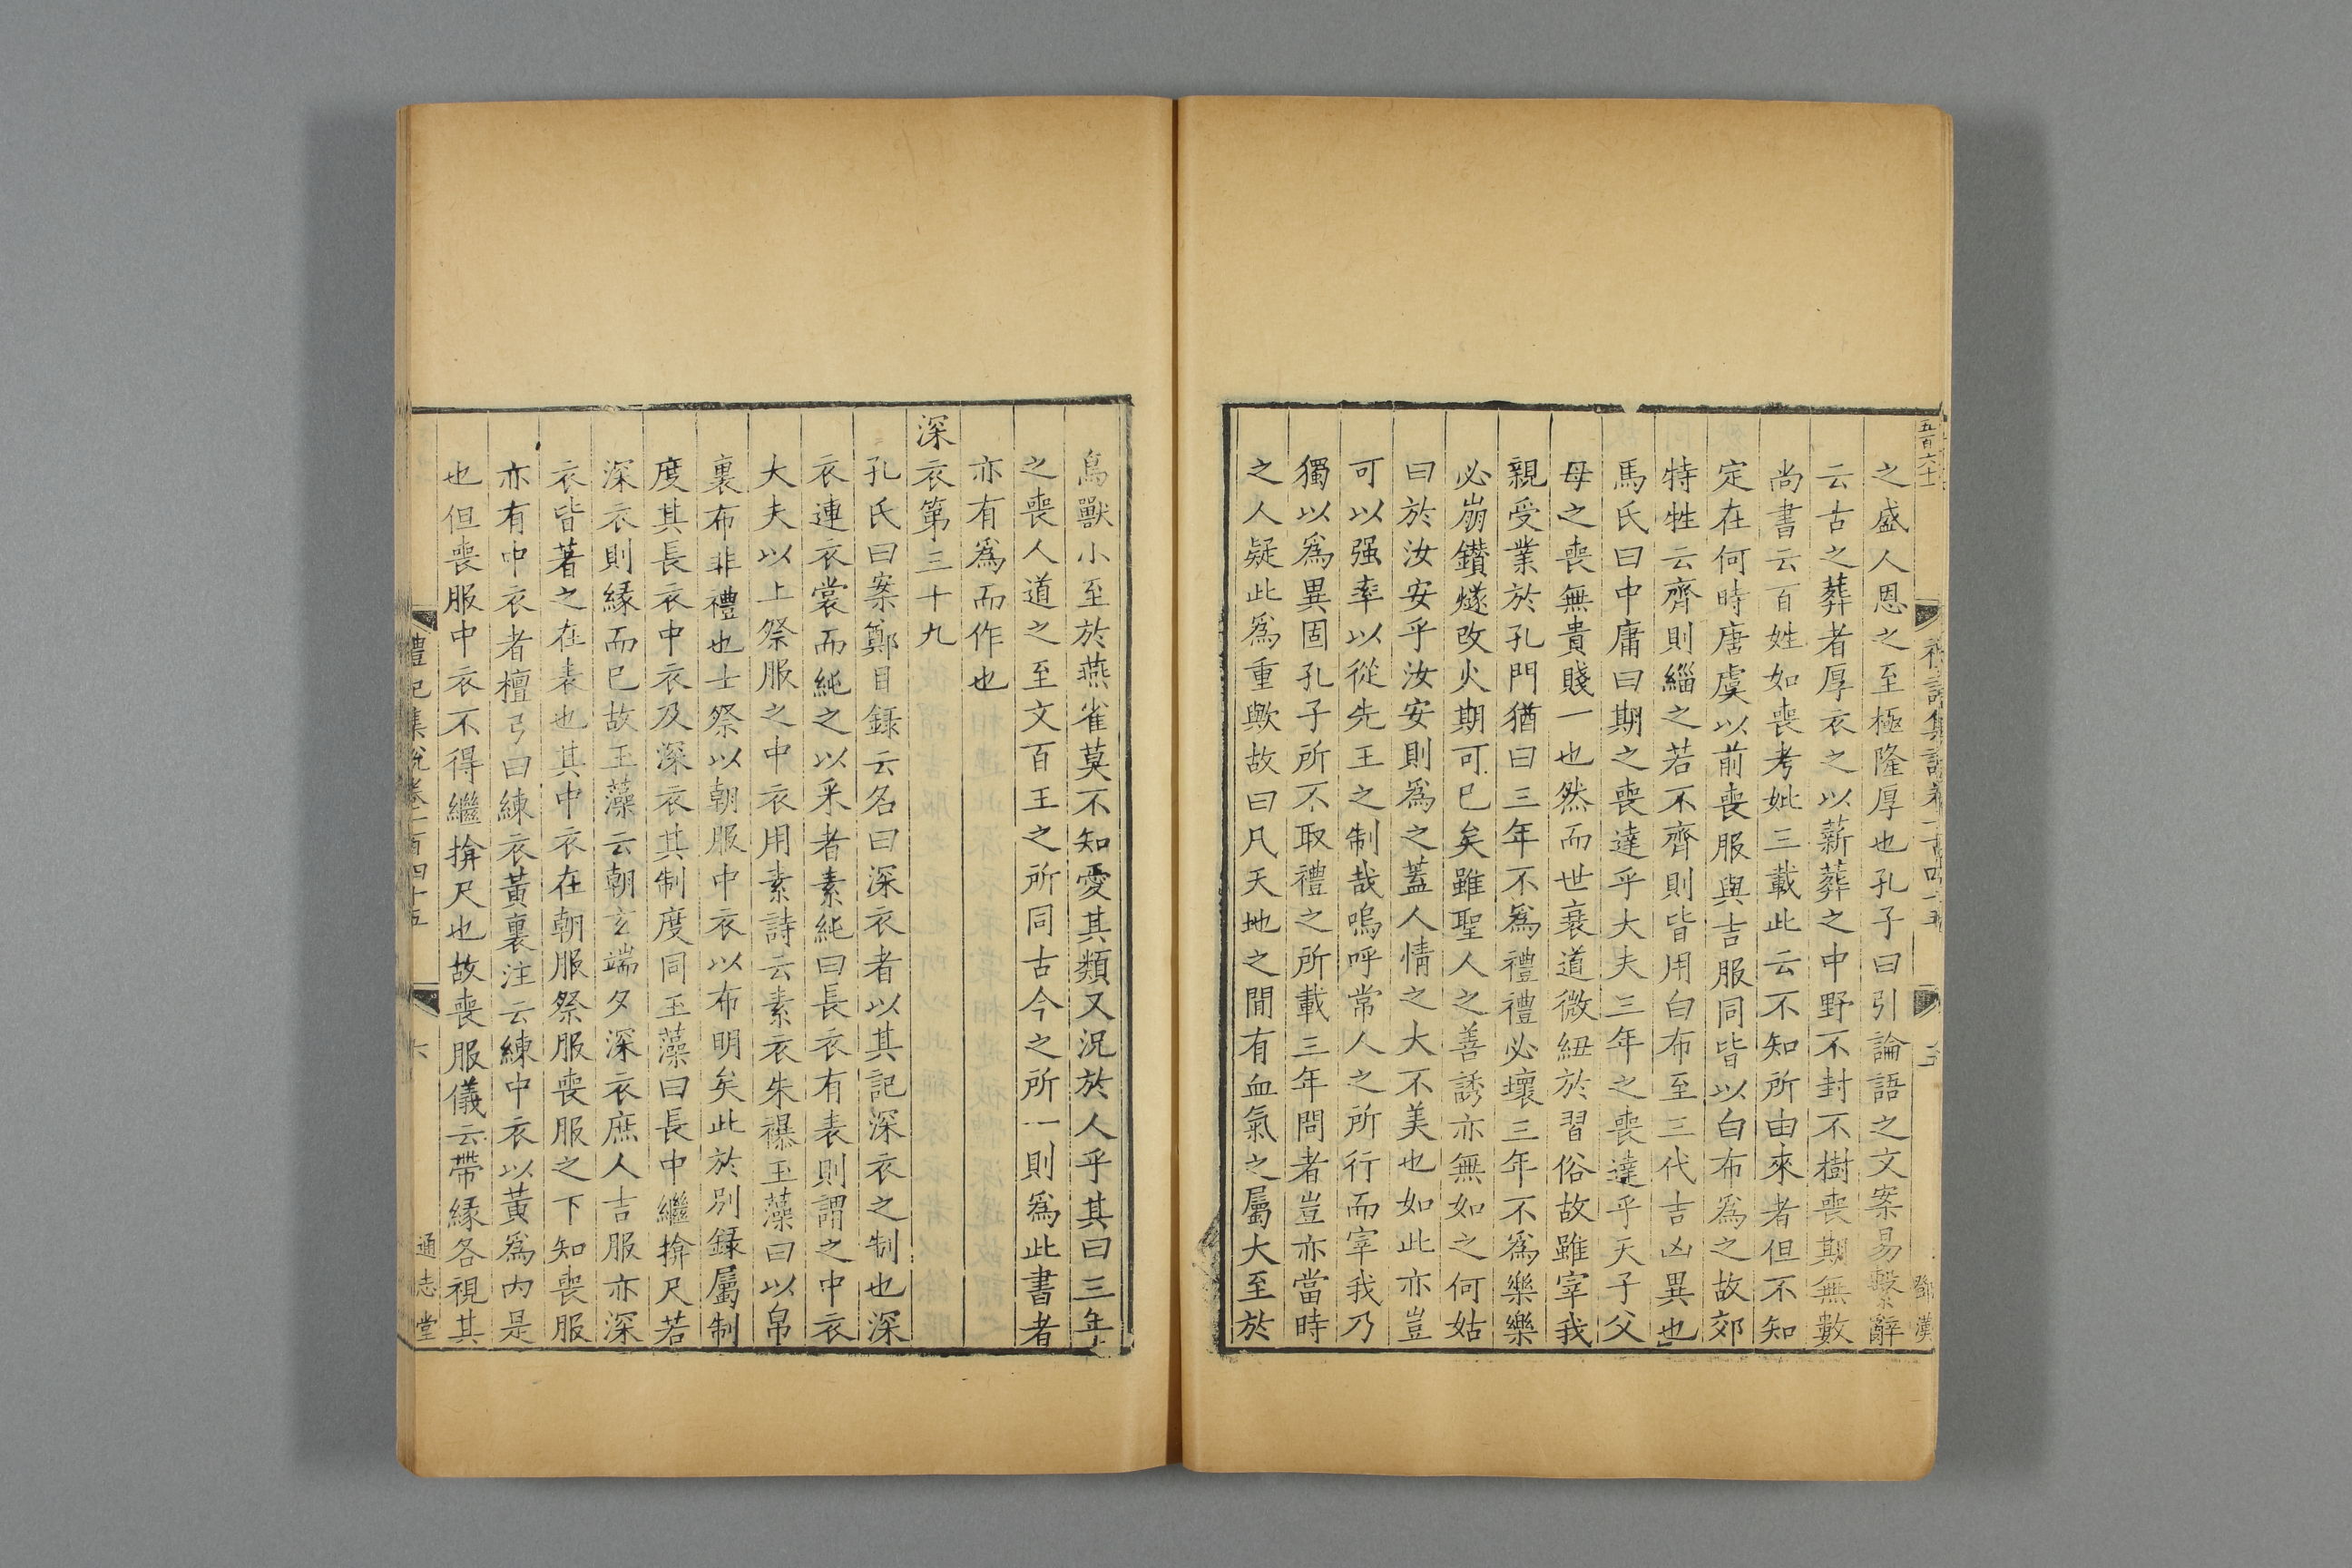 五百六十
之盛人恩之至極隆厚也孔子曰引論語之文案易繫辭
云古之葬者厚衣之以薪葬之中野不封不樹喪期無數
尚書云百姓如喪考妣三載此云不知所由來者但不知
定在何時唐虞以前喪服與吉服同皆以白布為之故郊
特牲云齊則緇之若不齊則皆用白布至三代吉凶異也
馬氏曰中庸曰期之喪達乎大夫三年之喪達乎天子父
母之喪無貴賤一也然而世衰道微紐於習俗故雖宰我
親受業於孔門猶曰三年不為禮禮必壞三年不為樂樂
必崩鑽燧改火期可已矣雖聖人之善誘亦無如之何姑
曰於汝安乎汝安則為之蓋人情之大不美也如此亦豈
可以强率以從先王之制哉嗚呼常人之所行而宰我乃
獨以為異固孔子所不取禮之所載三年問者豈亦當時
之人疑此為重歟故曰凡天地之間有血氣之屬大至於
鳥獸小至於燕雀莫不知愛其類又況於人乎其曰三年
之喪人道之至文百王之所同古今之所一則為此書者
亦有為而作也
深衣第三十九
孔氏曰案鄭目録云名曰深衣者以其記深衣之制也深
衣連衣裳而純之以采者素純曰長衣有表則謂之中衣
大夫以上祭服之中衣用素詩云素衣朱襮玉藻曰以帛
裏布非禮也士祭以朝服中衣以布明矣此於别録屬制
度其長衣中衣及深衣其制度同玉藻曰長中繼揜尺若
深衣則緣而已故玉藻云朝玄端夕深衣庶人吉服亦深
衣皆著之在表也其中衣在朝服祭服喪服之下知喪服
亦有中衣者檀弓曰練衣黃裏注云練中衣以黃為内是
也但喪服中衣不得繼揜尺也故喪服儀云帶緣各視其
禮記集說卷一百四十五
六
通志堂